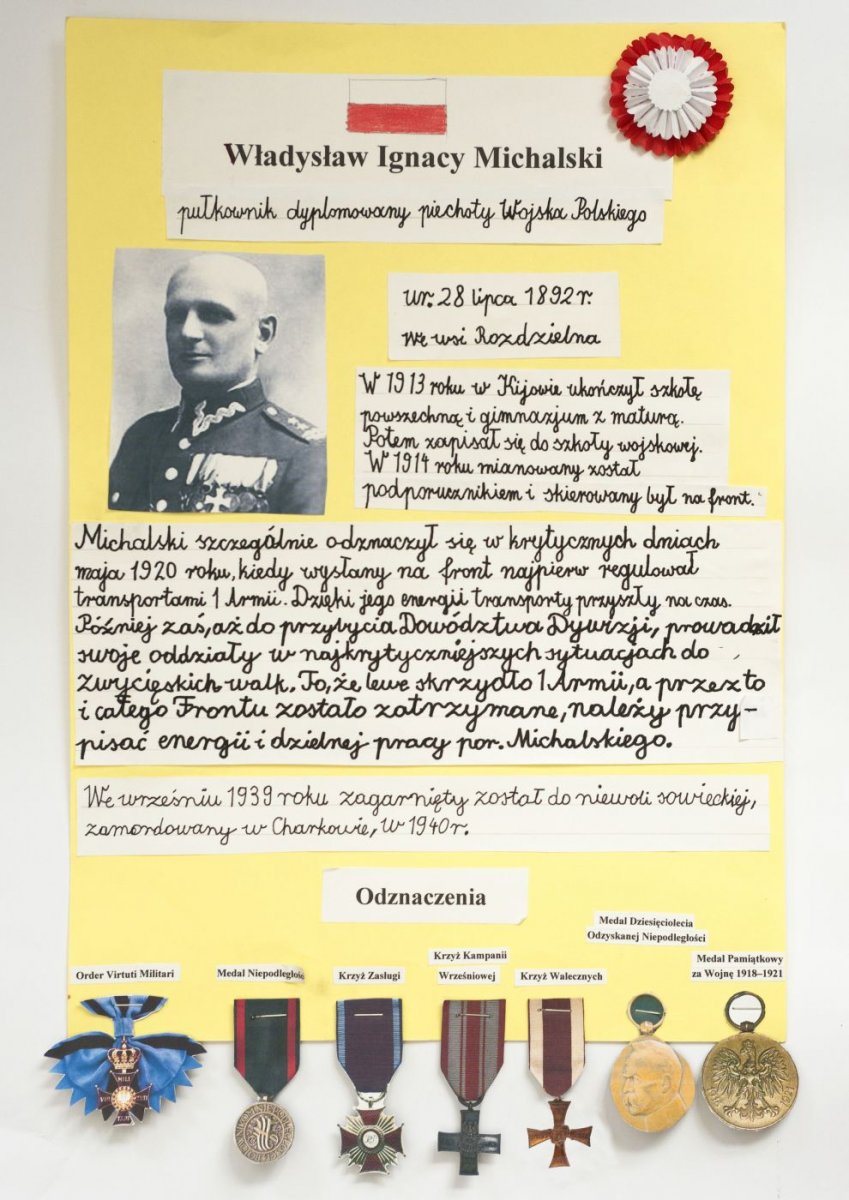 Władysław Ignacy Michalski
pułkownik dyplomowany piechoty Wojska Polskiego
ur. 28 lipca 1892 r.
we wsi Rozdzielna
W 1913 roku w Kijowie ukończył szkołę
powszechną i gimnazjum z maturą.
Potem zapisał się do szkoły wojskowej.
W 1914 roku mianowany został
podporucznikiem i skierowany był na front.
Michalski szczególnie odznaczył się w krytycznych dniach
maja 1920 roku, kiedy wysłany na front najpierw regulował
transportami 1 Armii. Dzięki jego energii transporty przyszły na czas.
Później zaś, aż do przybycia Dowództwa Dywizji, prowadził
swoje oddziały w najkrytyczniejszych sytuacjach do
zwycięskich walk. To, że lewe skrzydło 1 Armii, a przez to
i całego Frontu zostało zatrzymane, należy przy-
pisać energii i dzielnej pracy por. Michalskiego.
We wrześniu 1939 roku zagarnięty został do niewoli sowieckiej,
zamordowany w Charkowie, w 1940 r.
Odznaczenia
Order Virtuti Militari
Medal Niepodległośc
Krzyż Zasługi
Krzyż Kampanii
Wrześniowej
Krzyż Walecznych
Medal Dziesięciolecia
Odzyskanej Niepodległości
Medal Pamiątkowy
za Wojnę 1918–1921